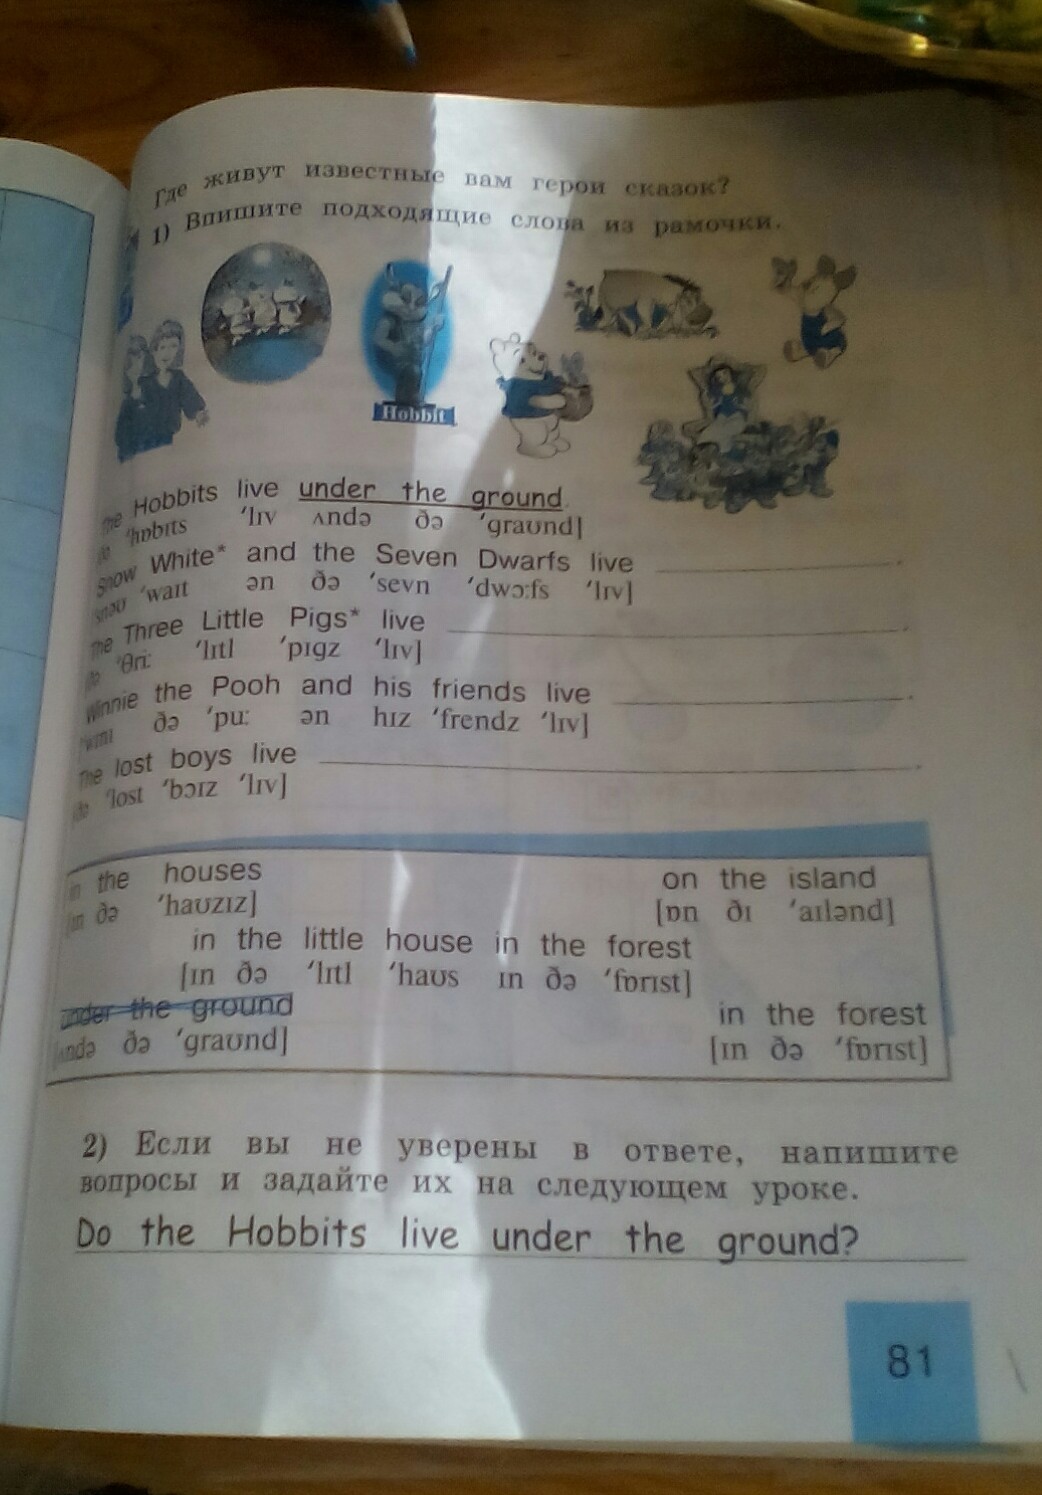 Где живут известные вам герои сказок?
1) Впишите подходящие слова из рамочки.
Hobbit
The Hobbits live under the ground.
[ðə ˈhɒbɪts ˈlɪv ʌndə ðə ˈgraʊnd]
Snow White* and the Seven Dwarfs live .
[ˈsnəʊ ˈwaɪt ən ðə ˈsevn ˈdwɔ:fs ˈlɪv]
The Three Little Pigs* live .
[ðə ˈθri: ˈlɪtl ˈpɪgz ˈlɪv]
Winnie the Pooh and his friends live .
[ˈwɪnɪ ðə ˈpu: ən hɪz ˈfrendz ˈlɪv]
The lost boys live .
[ðə ˈlost ˈbɔɪz ˈlɪv]
in the houses on the island
[ɪn ðə ˈhaʊzɪz] [ɒn ðɪ ˈaɪlənd]
in the little house in the forest
[ɪn ðə ˈlɪtl ˈhaʊs ɪn ðə ˈfɒrɪst]
under the ground in the forest
[ʌndə ðə ˈgraʊnd] [ɪn ðə ˈfɒrɪst]
2) Если вы не уверены в ответе, напишите
вопросы и задайте их на следующем уроке.
Do the Hobbits live under the ground?
81